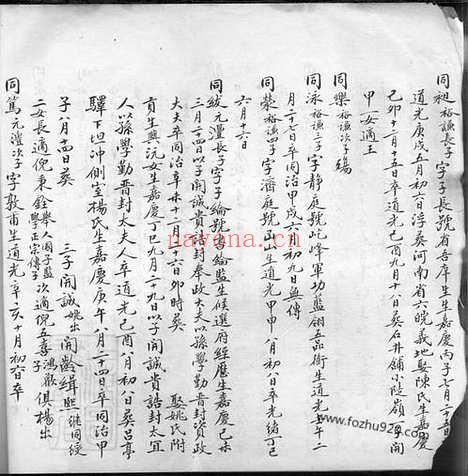 同昶裕謙長子字子長號省吾庠生生嘉慶丙子七月二十五日
道光庚戌五月初六日浮葬河南省六皖義地娶陳氏生嘉慶
己卯十二月十五日卒道光己酉九月十日葬石井鋪小陡嶺一子開
甲一女適王
同樂裕謙次子殤
同泳裕謙三子字靜庭號屺峰軍功藍翎五品銜生道光 年二
月二十七日卒同治甲戌六月初九日無傳
同榮裕謙四子字濟庭號 山生道光甲申八月初八日卒光緒丁巳
六月十六日
同紱元澧長子字子綸號 綸監生候選府經歷生嘉慶己未
三月二十四日以子開誠貴封奉政大夫以孫學勤晉封資政
大夫卒同治辛未十一月十六日卯時葬 娶姚氏附
貢生興沅女生嘉慶丁巳九月二十九日以子開誠貴誥封太宜
人以孫學勤晉封太夫人卒道光己酉八月初八日葬呂亭
驛下 沖側室楊氏生嘉慶庚午八月二十四日卒同治甲
子八月十四日葬 三子開誠姚出開齡緝熙繼同綬
二女長適倪秉銓舉人國子監學正 傳子次適倪五喜子鴻 俱楊出
同篤元澧次子字敦甫生道光辛亥十月初六日卒
nayona.cn
海量资源
www.fozhu920.com